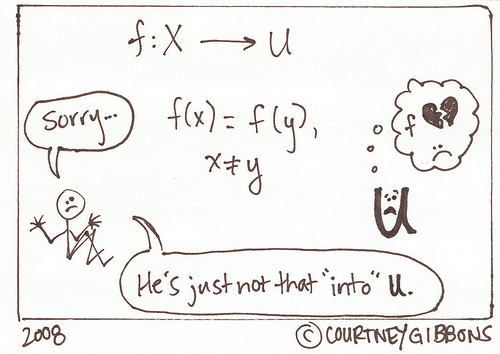 f: X → U
sorry...
f(x) = f(y),
x ≠ y
f
U
He's just not that "into" U.
2008
© COURTNEY GIBBONS